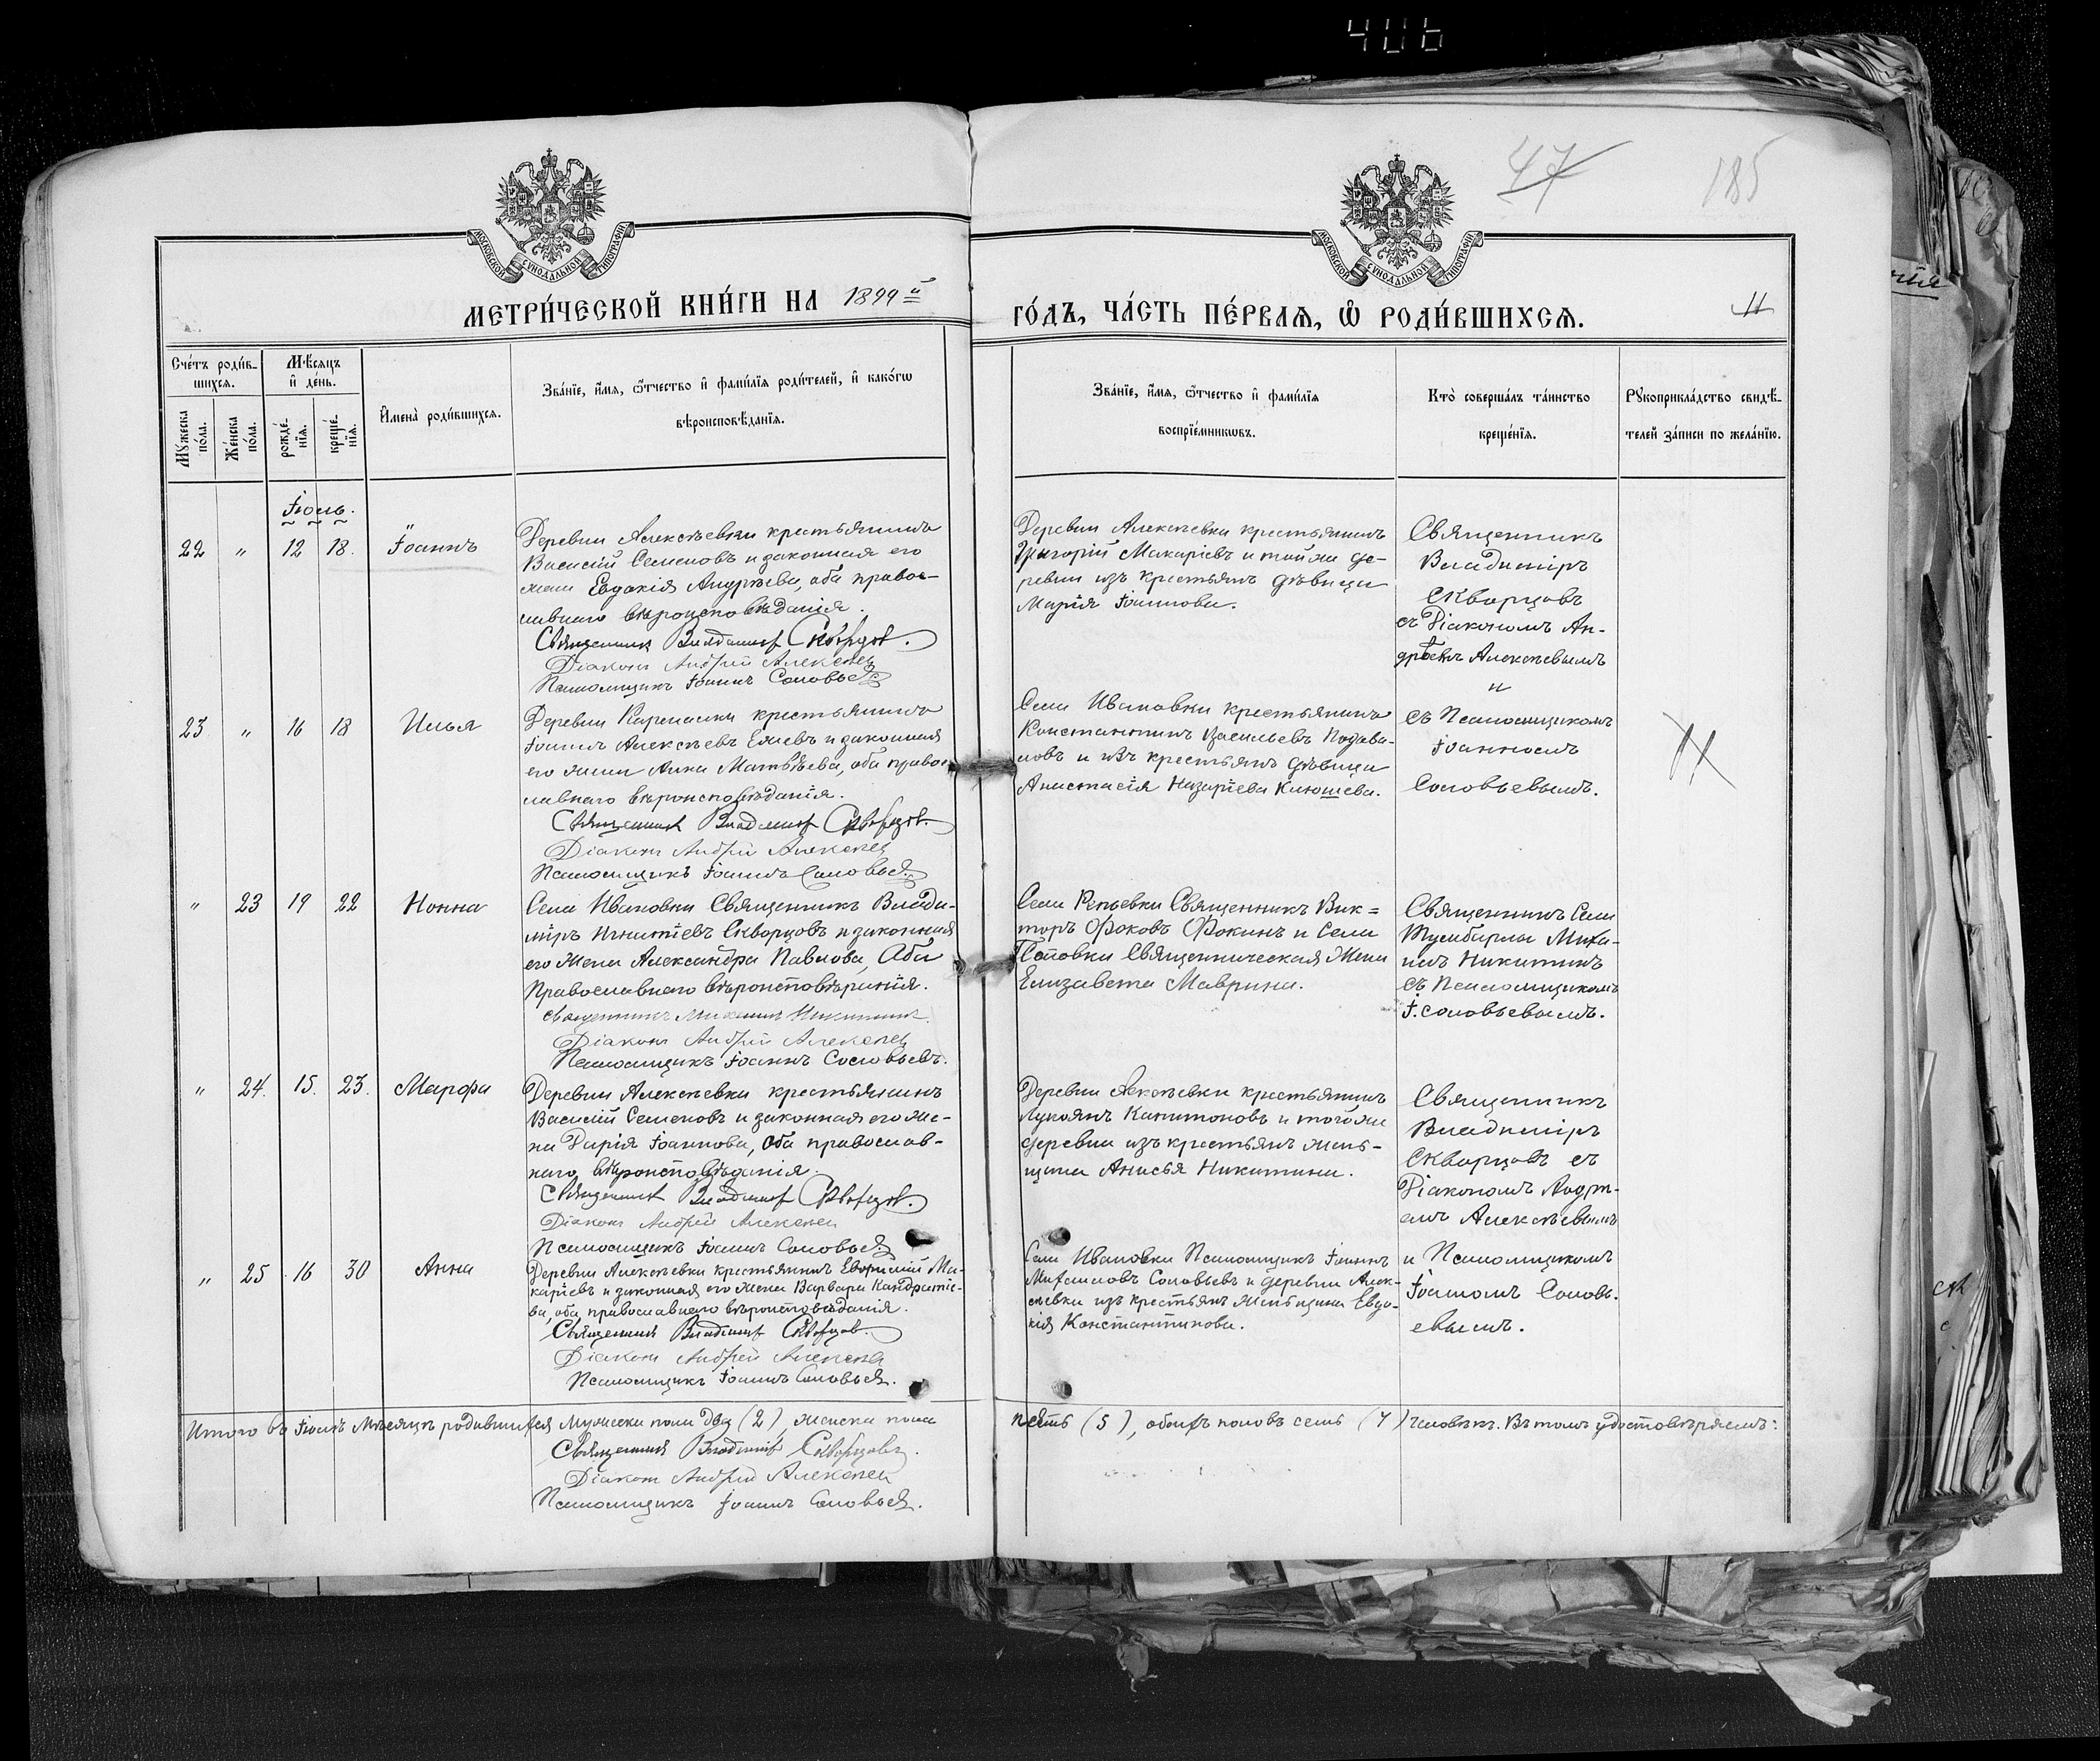 406
47
185
МОСКОВСКОЙ СѴНОДАЛЬНОЙ ТИПОГРАФІИ
МОСКОВСКОЙ СѴНОДАЛЬНОЙ ТИПОГРАФІИ
МЕТРИ́ЧЕСКОЙ КНИ́ГИ НА 1899й
ГО́ДЪ, ЧА́СТЬ ПЕ́РВАѦ, Ѡ҆ РОДИ́ВШИХСѦ.
11
Сче́тъ роди́в-
шихсѧ.
Мѣ́сѧцъ
и҆ де́нь.
Мꙋ́жеска по́ла.
Же́нска по́ла.
рожде́-нїѧ.
креще́-нїѧ.
И҆мена̀ роди́вшихсѧ.
Зва́нїе, и҆́мѧ, ѻ҆́тчество и҆ фами́лїѧ роди́телей, и҆ како́гѡ
вѣроисповѣ́данїѧ.
Зва́нїе, и҆́мѧ, ѻ҆́тчество и҆ фами́лїѧ
воспрїе́мникѡвъ.
Кто̀ соверша́лъ та́инство
креще́нїѧ.
Рꙋкоприкла́дство свидѣ́-
телей за́писи по жела́нїю.
Іюль.
22 " 12 18. Іоаннъ
Деревни Алексѣевки крестьянинъ
Василій Семеновъ и законная его
жена Евдокія Андрѣева, оба право-
славнаго вѣроисповѣданія.
Священникъ Владиміръ Скворцовъ.
Діаконъ Андрей Алексѣевъ
Псаломщикъ Іоаннъ Соловьевъ
Деревни Алексѣевки крестьянинъ
Григорій Макаріевъ и той же де-
ревни изъ крестьянъ дѣвица
Марія Іоаннова.
Священникъ
Владиміръ
Скворцовъ
съ Діакономъ Ан-
дреемъ Алексѣевымъ
и
съ Псаломщикомъ
Іоанномъ
Соловьевымъ.
23 " 16 18 Илья
Деревни крестьянинъ
Іоаннъ Алексѣевъ и законная
его жена Анна Матвѣева, оба право-
славнаго вѣроисповѣданія.
Священникъ Владиміръ Скворцовъ.
Діаконъ Андрей Алексѣевъ
Псаломщикъ Іоаннъ Соловьевъ.
Села Ивановки крестьянинъ
Константинъ Васильевъ Подва-
ловъ и изъ крестьянъ дѣвица
Анастасія Назаріева Клюшева.
" 23 19 22 Нонна
Села Ивановки Священникъ Влади-
міръ Игнатіевъ Скворцовъ и законная
его жена Александра Павлова, Оба
Православнаго вѣроисповѣданія.
Священникъ Михаилъ Никитинъ.
Діаконъ Андрей Алексѣевъ
Псаломщикъ Іоаннъ Соловьевъ.
Села Репьевки Священникъ Вик=
торъ Фоковъ Фокинъ и Села
Священническая Жена
Елизавета Маврина.
Священникъ Села
Миха-
илъ Никитинъ
съ Псаломщикомъ
І. Соловьевымъ.
" 24. 15. 23. Марфа
Деревни Алексѣевки крестьянинъ
Василій Семеновъ и законная его же-
на Дарія Іоаннова, оба православ-
наго вѣроисповѣданія.
Священникъ Владиміръ Скворцовъ.
Діаконъ Андрей Алексѣевъ
Псаломщикъ Іоаннъ Соловьевъ.
Деревни Алексѣевки крестьянинъ
Лукоянъ Капитоновъ и той же
деревни изъ крестьянъ жен-
щина Анисья Никитина.
Священникъ
Владиміръ
Скворцовъ съ
Діакономъ Андре-
емъ Алексѣевымъ
и Псаломщикомъ
Іоанномъ Соловь-
евымъ.
" 25 16 30 Анна
Деревни Алексѣевки крестьянинъ Евфимій Ма-
каріевъ и законная его жена Варвара Кондратіе-
ва, оба православнаго вѣроисповѣданія.
Священникъ Владиміръ Скворцовъ.
Діаконъ Андрей Алексѣевъ
Псаломщикъ Іоаннъ Соловьевъ.
Села Ивановки Псаломщикъ Іоаннъ
Михаиловъ Соловьевъ и деревни Алек-
сѣевки изъ крестьянъ женщина Евдо-
кія Константинова.
Итого въ Іюлѣ Мѣсяцѣ родившихся Мужеска пола два (2), женска пола
пять (5), обоихъ половъ семь (7) человѣкъ. Въ томъ удостовѣряемъ:
Священникъ Владиміръ Скворцовъ.
Діаконъ Андрей Алексѣевъ
Псаломщикъ Іоаннъ Соловьевъ.